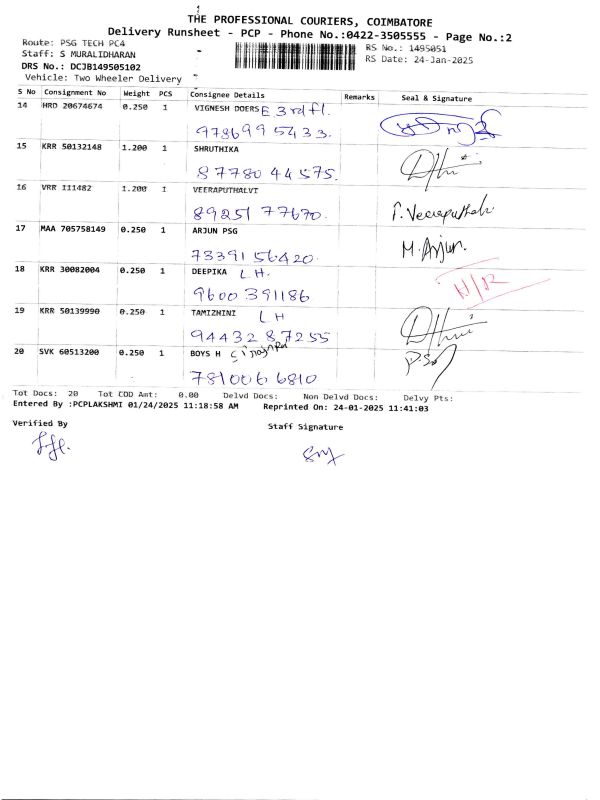 THE PROFESSIONAL COURIERS, COIMBATORE
Delivery Runsheet - PCP - Phone No.:0422-3505555 - Page No.:2
Route: PSG TECH PC4
RS No.: 1495051
Staff: S MURALIDHARAN
RS Date: 24-Jan-2025
DRS No.: DCJB149505102
Vehicle: Two Wheeler Delivery
S No Consignment No Weight PCS Consignee Details Remarks Seal & Signature
14 HRD 20674674 0.250 1 VIGNESH DOERS E 3rd fl.
9786995433.
15 KRR 50132148 1.200 1 SHRUTHIKA
8778044575.
16 VRR 111482 1.200 1 VEERAPUTHALVI
8925177670. P. Veeraputhalvi
17 MAA 705758149 0.250 1 ARJUN PSG M. Arjun.
7339156420.
18 KRR 30082004 0.250 1 DEEPIKA L H. N/R
9600391186
19 KRR 50139990 0.250 1 TAMIZHINI L H
9443287255
20 SVK 60513200 0.250 1 BOYS H
7810066810
Tot Docs: 20 Tot COD Amt: 0.00 Delvd Docs: Non Delvd Docs: Delvy Pts:
Entered By :PCPLAKSHMI 01/24/2025 11:18:58 AM Reprinted On: 24-01-2025 11:41:03
Verified By Staff Signature